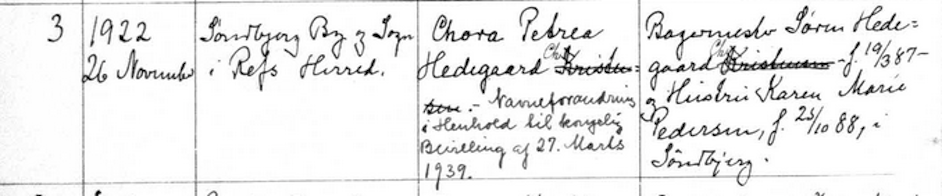 3
1922
26 November
Søndbjerg By og Sogn
i Refs Herred.
Chora Petrea
Hedegaard Chr. Kristen=
sen. - Navneforandring
i Henhold til kongelig
Bevilling af 27. Marts
1939.
Bagermester Søren Hede=
gaard Chr. Kristensen f. 19/3 87 -
og Hustru Karen Marie
Pedersen, f. 25/10 88, i
Søndbjerg.